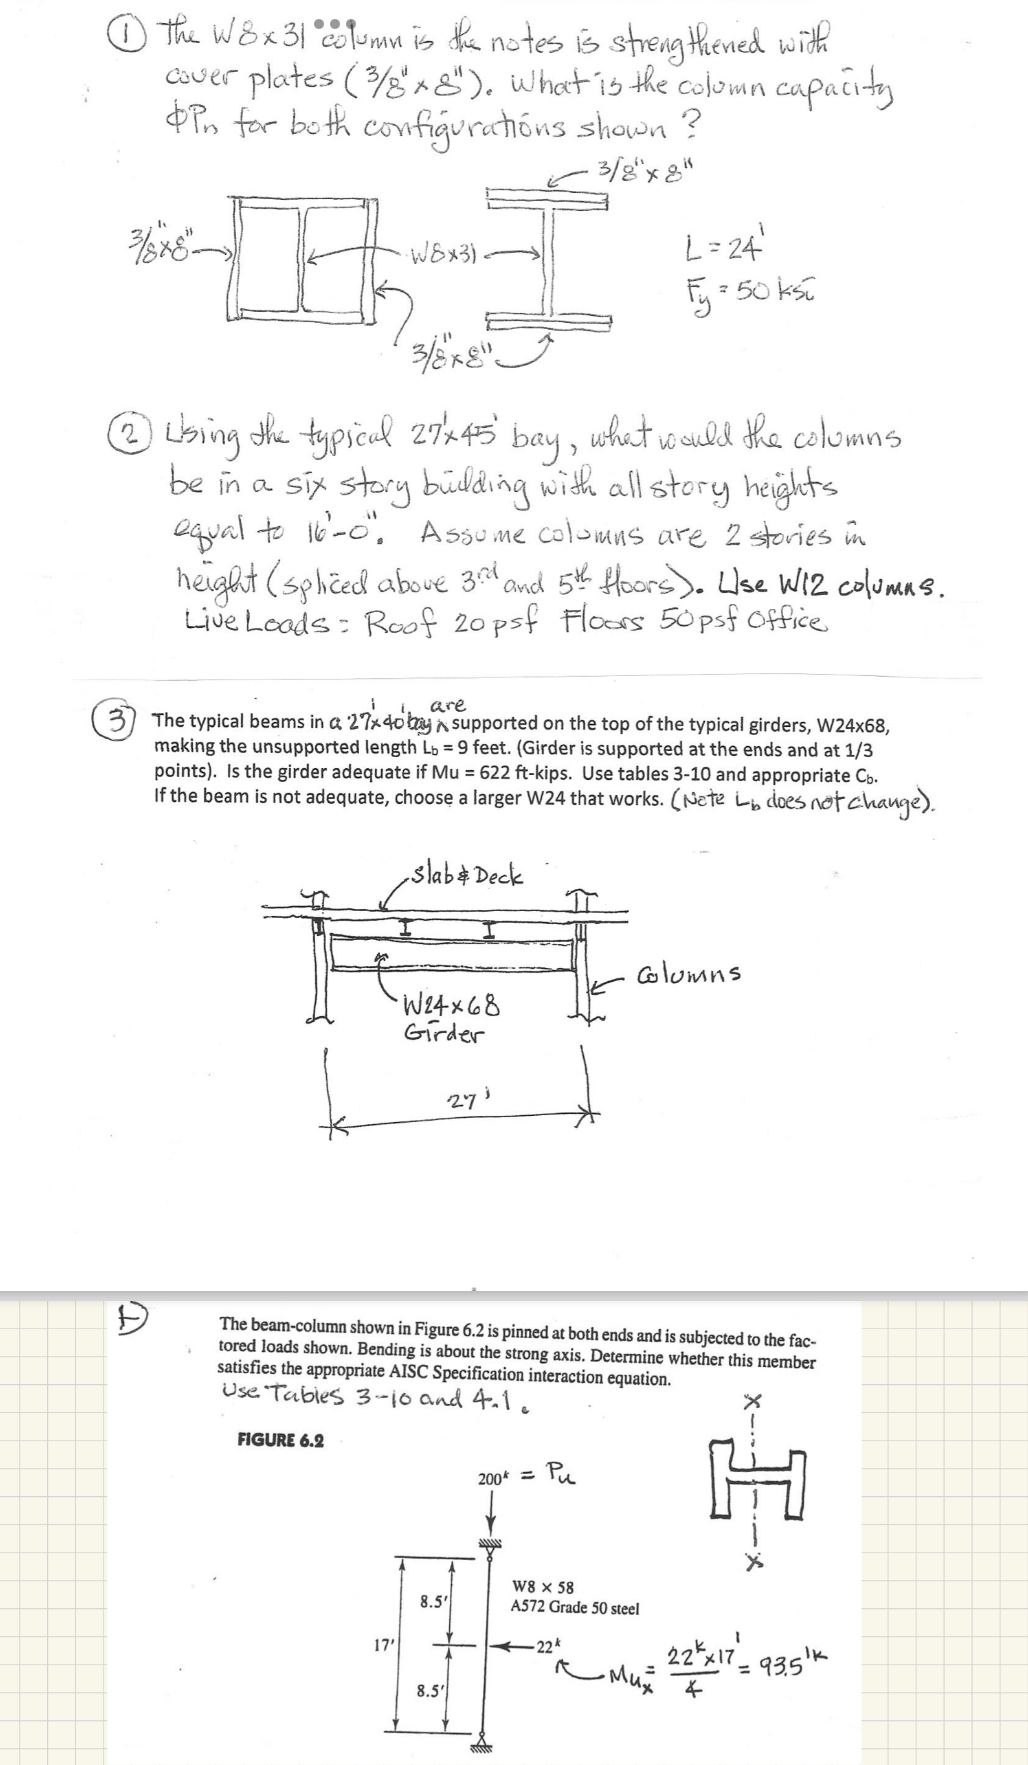 ① The W8x31 column is the notes is strengthened with
cover plates (3/8"x8"). What is the column capacity
ΦPn for both configurations shown?
3/8"x8"
3/8"x8"
W8x31
L = 24'
Fy = 50 ksi
3/8"x8"
② Using the typical 27'x45' bay, what would the columns
be in a six story building with all story heights
equal to 16'-0". Assume columns are 2 stories in
height (spliced above 3rd and 5th floors). Use W12 columns.
Live Loads: Roof 20psf Floors 50psf Office
③ The typical beams in a 27'x40' bay are supported on the top of the typical girders, W24x68,
making the unsupported length Lb = 9 feet. (Girder is supported at the ends and at 1/3
points). Is the girder adequate if Mu = 622 ft-kips. Use tables 3-10 and appropriate Cb.
If the beam is not adequate, choose a larger W24 that works. (Note Lb does not change).
Slab & Deck
Columns
W24x68
Girder
27'
The beam-column shown in Figure 6.2 is pinned at both ends and is subjected to the fac-
tored loads shown. Bending is about the strong axis. Determine whether this member
satisfies the appropriate AISC Specification interaction equation.
Use Tables 3-10 and 4.1.
x
FIGURE 6.2
200k = Pu
x
W8 × 58
A572 Grade 50 steel
8.5'
17'
22k
Mux = 22k x 17' / 4 = 93.5'k
8.5'